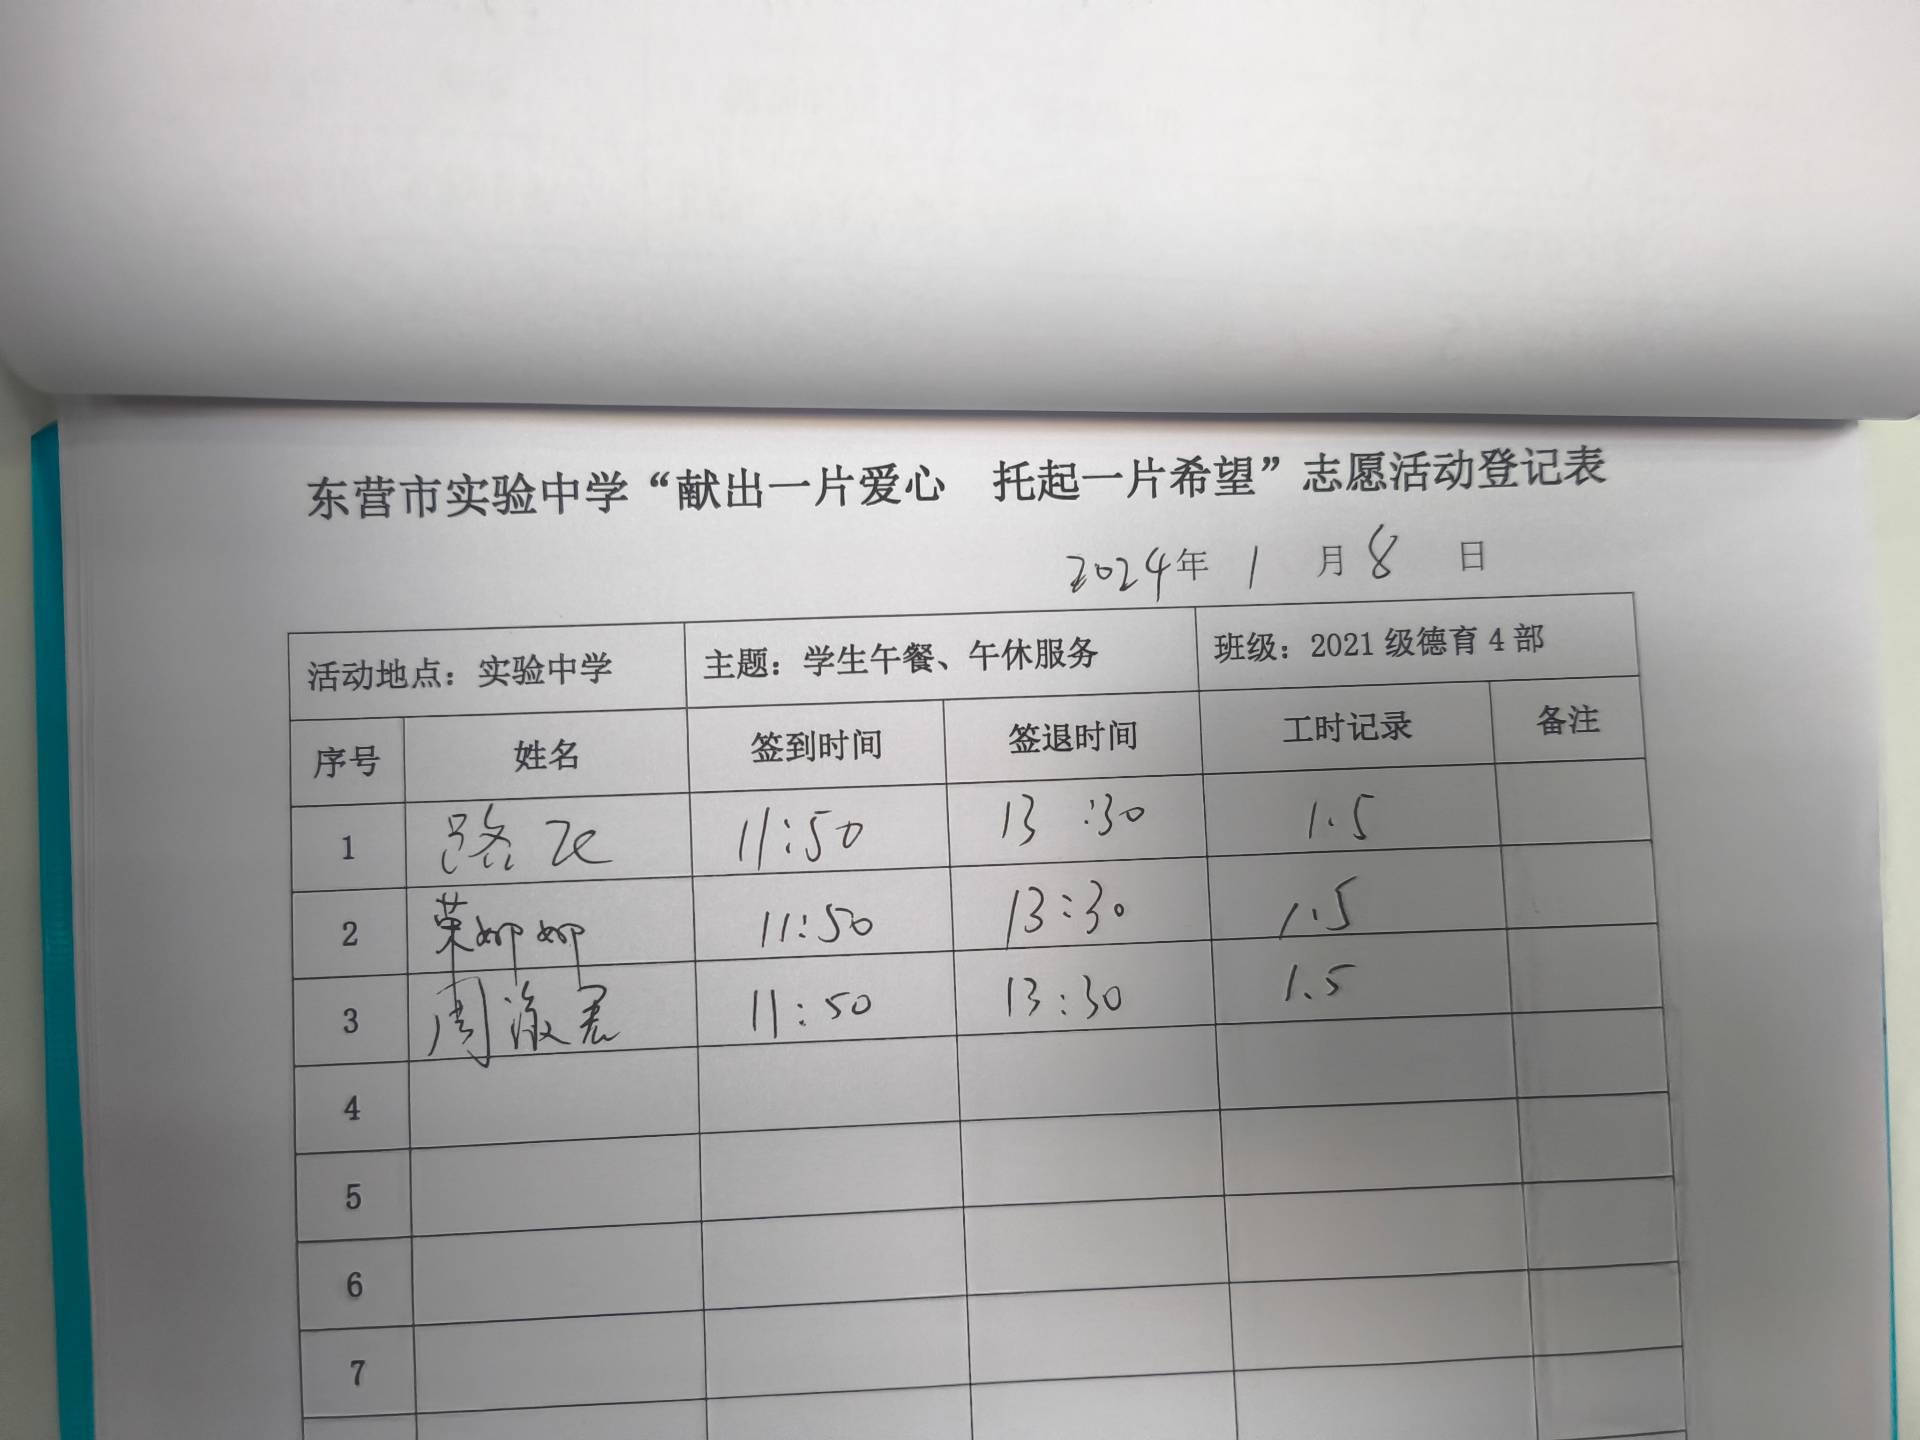 东营市实验中学“献出一片爱心 托起一片希望”志愿活动登记表
2024年 1 月 8 日
活动地点：实验中学 主题：学生午餐、午休服务 班级：2021级德育4部
序号 姓名 签到时间 签退时间 工时记录 备注
1 路 11:50 13:30 1.5
2 荣娜娜 11:50 13:30 1.5
3 周 11:50 13:30 1.5
4
5
6
7